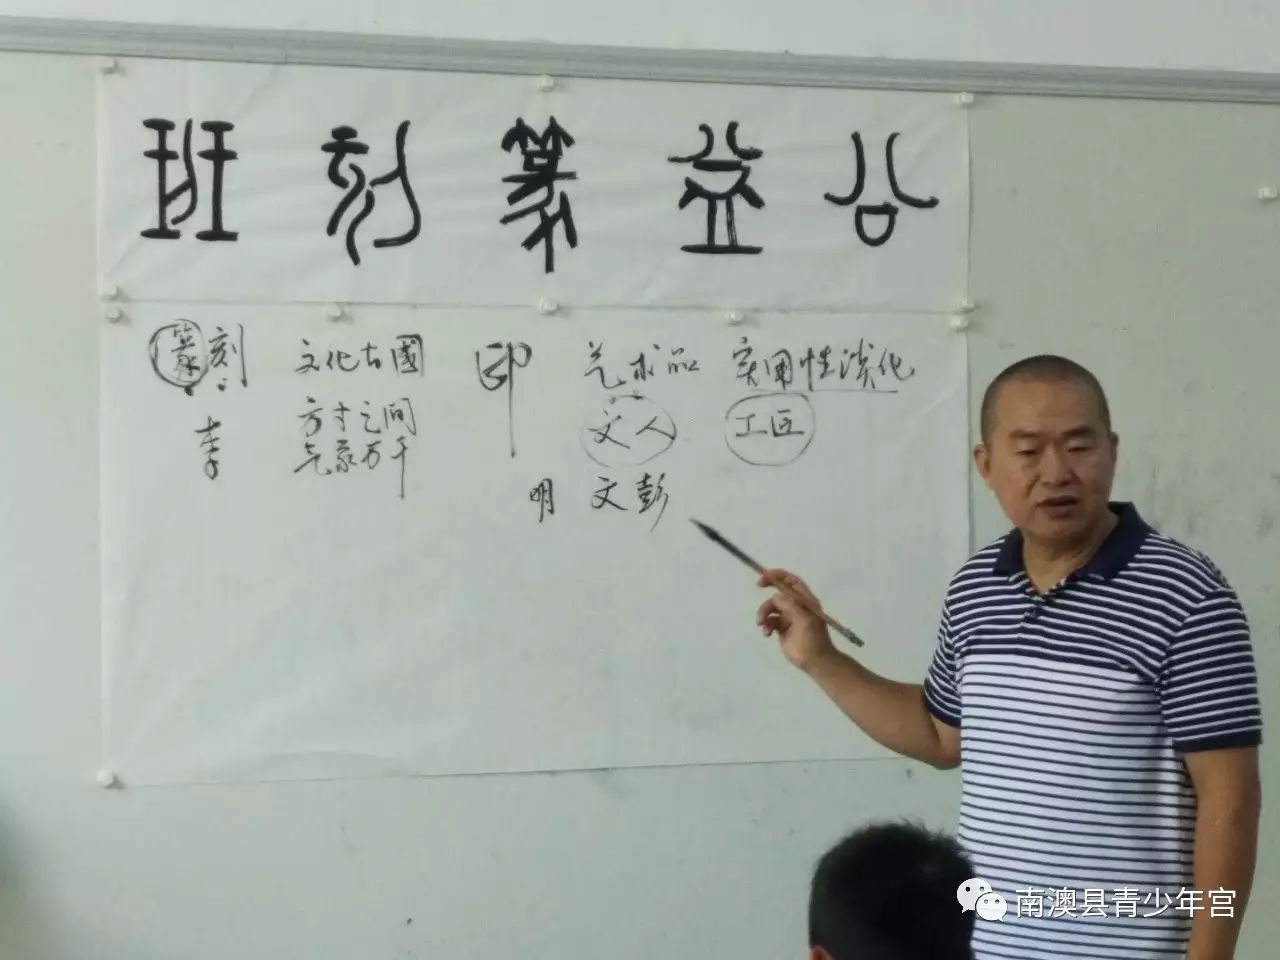 公益篆刻班
篆刻
李
文化古國
方寸之间
气象万千
印
艺术品 实用性淡化
文人 工匠
明 文彭
南澳县青少年宫